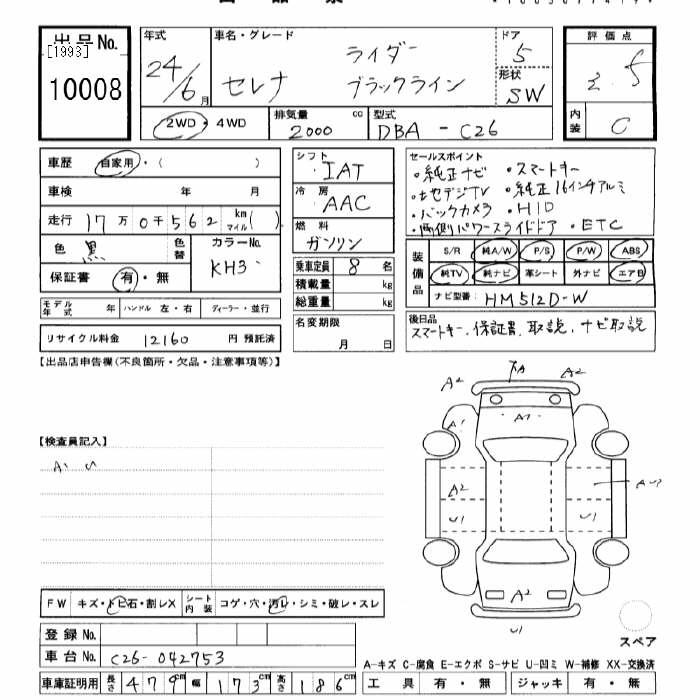 出品No.
[1993]
10008
年式
24/6月
車名・グレード
セレナ
ライダー
ブラックライン
ドア
5
形状
SW
2WD・4WD
排気量
2000 cc
型式
DBA-C26
評価点
3.5
内装
C
車歴 自家用・( )
車検 年 月
走行 17万0千562 km マイル( )
色 黒
色替
カラーNo.
KH3
保証書 有・無
モデル年式 年 ハンドル 左・右 ディーラー・並行
リサイクル料金 12160 円 預託済
シフト
IAT
冷房
AAC
燃料
ガソリン
乗車定員 8 名
積載量 kg
総重量 kg
名変期限
月 日
セールスポイント
・純正ナビ ・スマートキー
・地デジTV ・純正16インチアルミ
・バックカメラ ・HID
・両側パワースライドドア ・ETC
装備品
S/R 純A/W P/S P/W ABS
純TV 純ナビ 革シート 外ナビ エアB
ナビ型番: HM512D-W
後日品
スマートキー、保証書、取説、ナビ取説
【出品店申告欄(不良箇所・欠品・注意事項等)】
【検査員記入】
A、U
FW キズ・トビ石・割レX シート内装 コゲ・穴・汚レ・シミ・破レ・スレ
登録No.
車台No. C26-042753
車庫証明用 長さ 479cm 幅 173cm 高さ 186cm
A2
A
A2
A1
A1
A2
U1
U1
A2
U1
スペア
A-キズ C-腐食 E-エクボ S-サビ U-凹ミ W-補修 XX-交換済
工具 有・無 ジャッキ 有・無